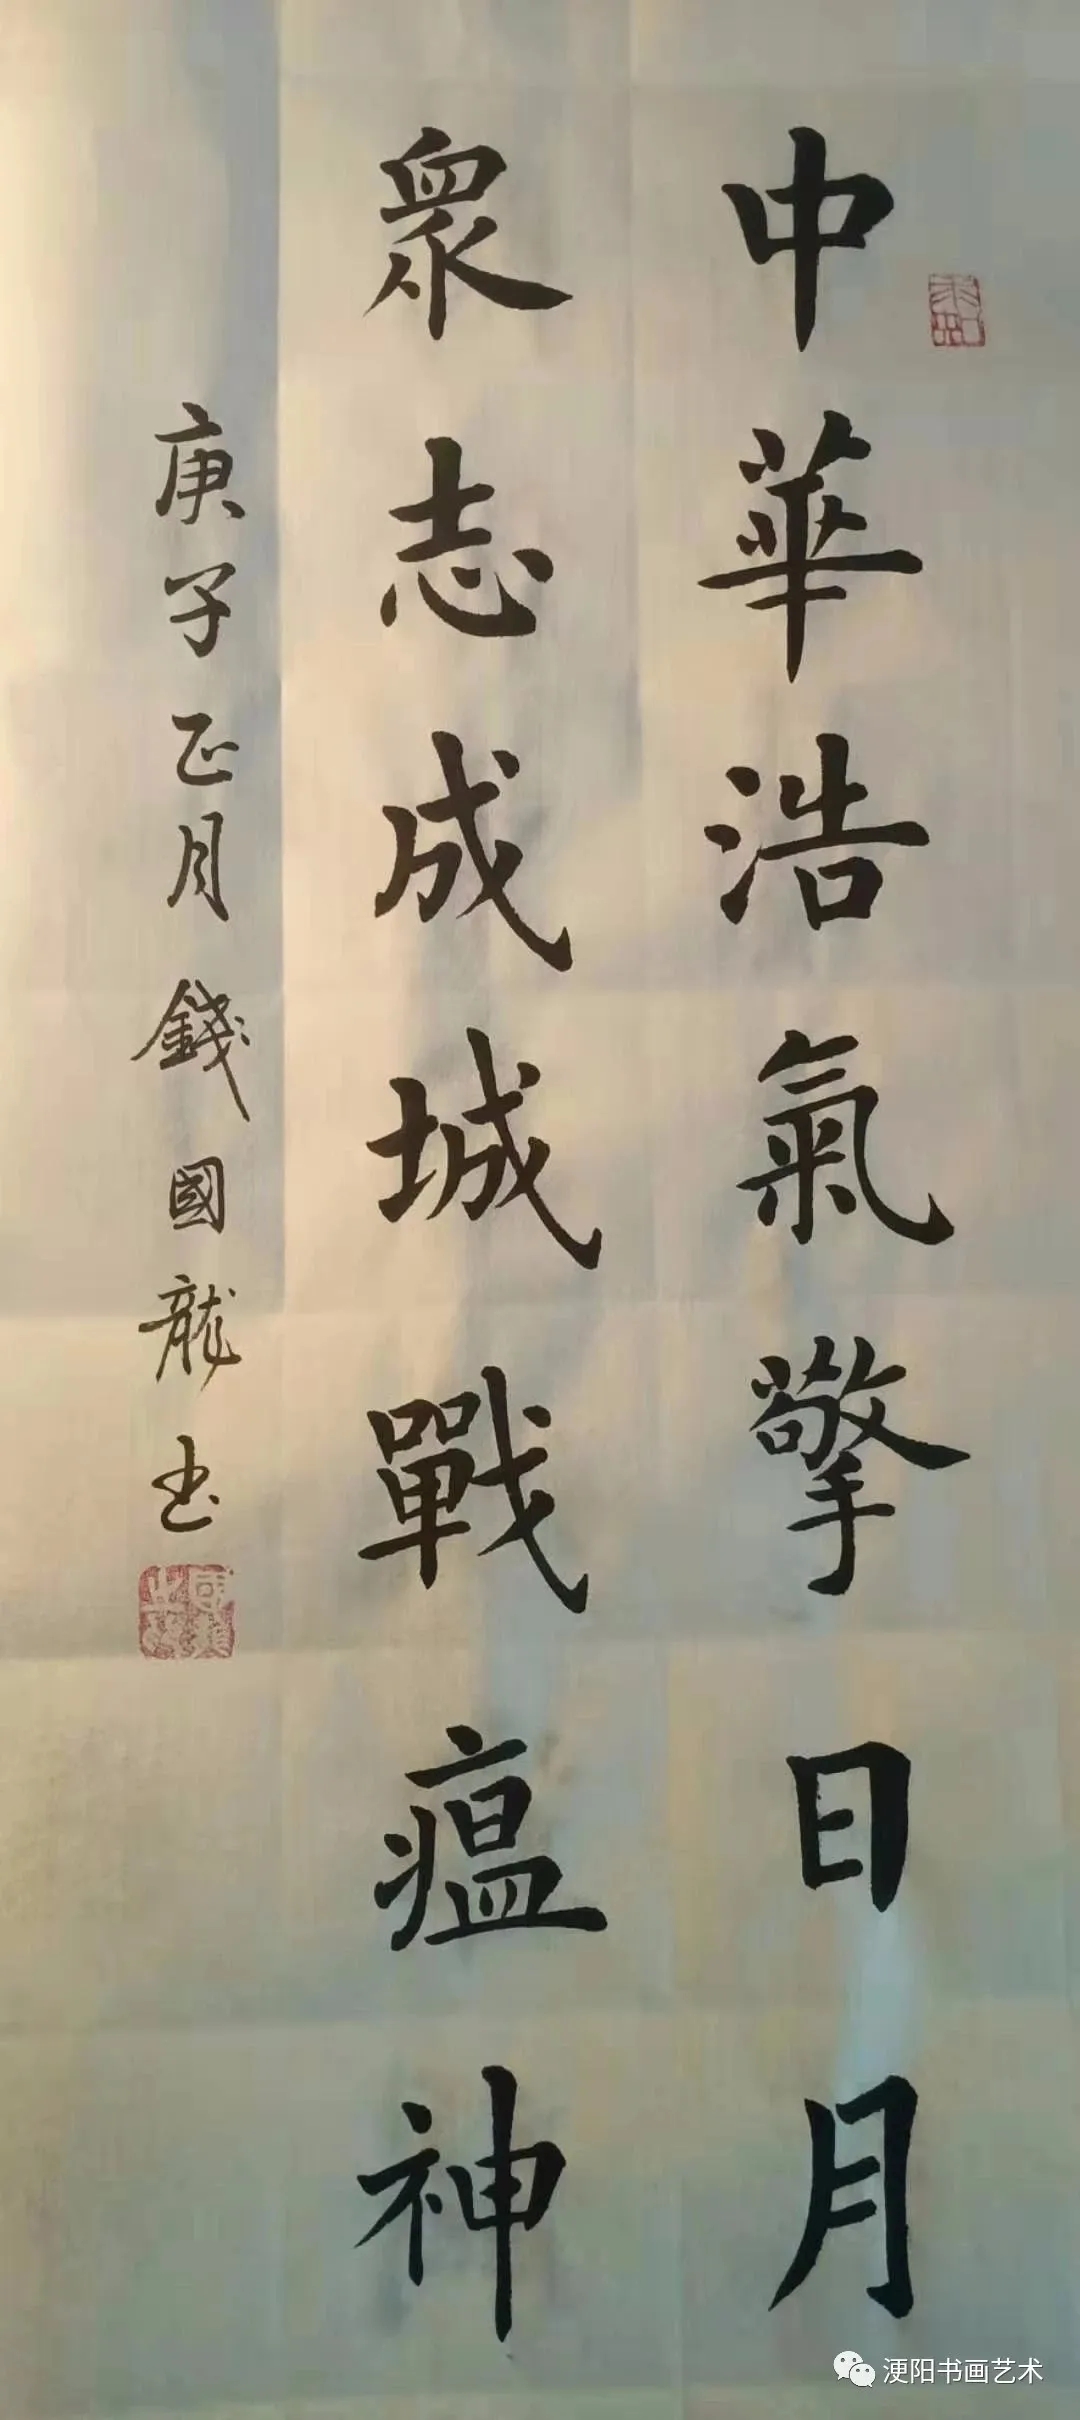 中華浩氣擎日月
衆志成城戰瘟神
庚子正月錢國龍书
梗阳书画艺术